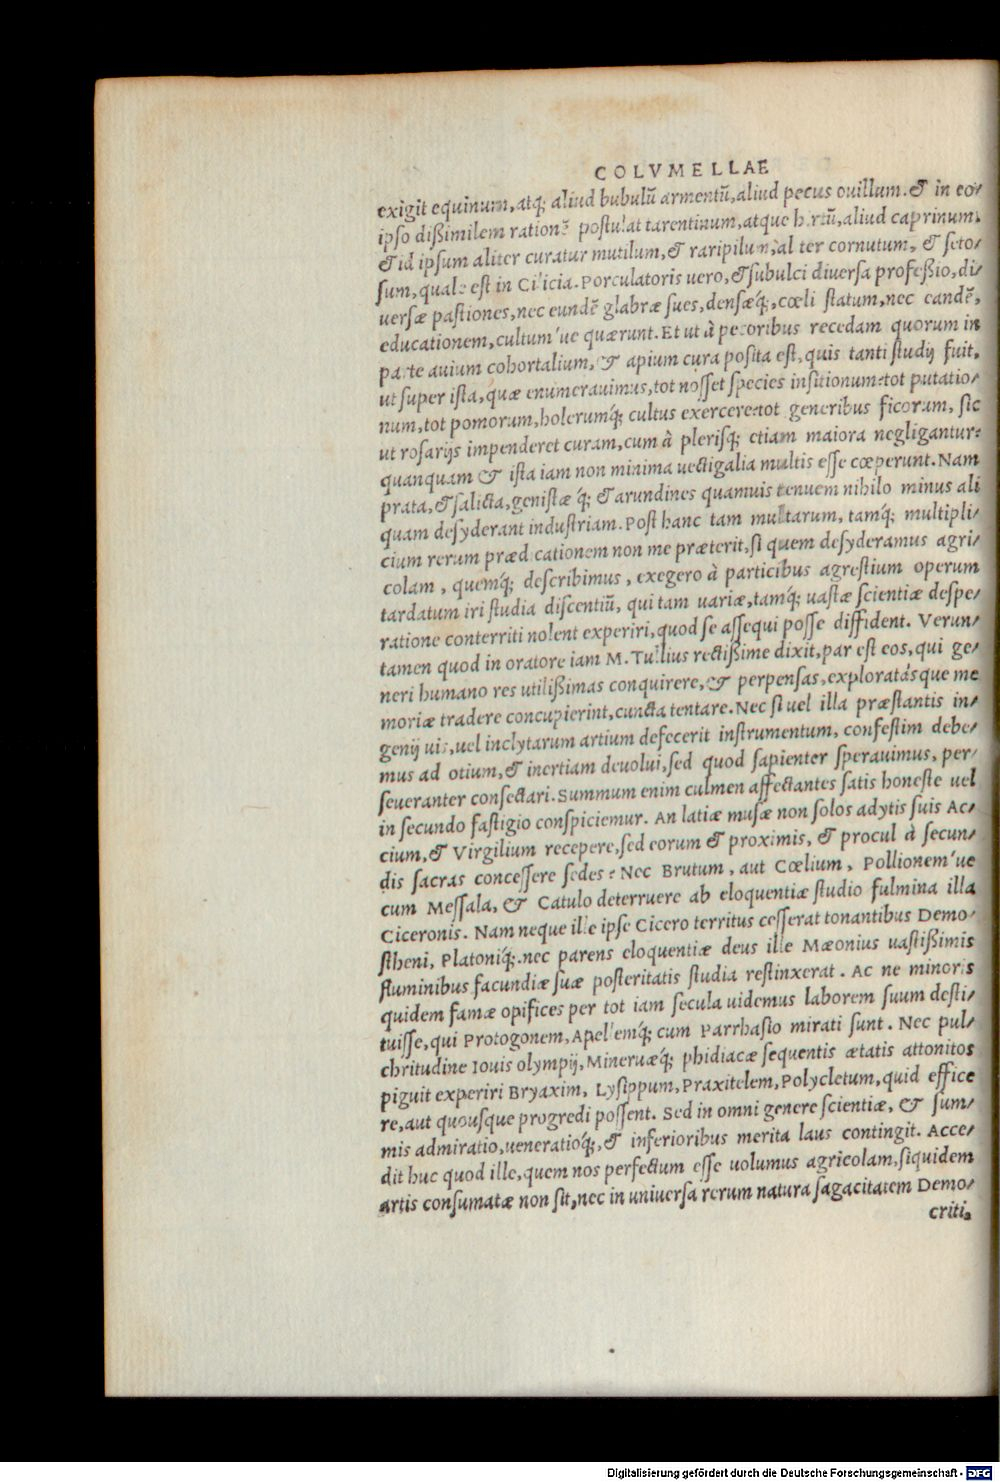 COLVMELLAE
exigit equinum, atq; aliud bubulũ armentũ, aliud pecus ouillum. & in eo/
ipso dißimilem rationẽ postulat tarentinum, atque hirtũ, aliud caprinum.
& id ipsum aliter curatur mutilum, & raripilum, al ter cornutum, & seto/
sum, quale est in Cilicia. Porculatoris uero, & subulci diuersa profeßio, di/
uersæ pastiones, nec eundẽ glabræ sues, densæq́;, cœli statum, nec eandẽ,
educationem, cultum'ue quærunt. Et ut à pecoribus recedam quorum in
parte auium cohortalium, & apium cura posita est, quis tanti studij fuit,
ut super ista, quæ enumerauimus, tot nosset species insitionum: tot putatio/
num, tot pomorum, holerumq́; cultus exerceret: tot generibus ficorum, sic
ut rosarijs impenderet curam, cum à plerisq; etiam maiora negligantur:
quanquam & ista iam non minima uectigalia multis esse cœperunt. Nam
prata, & salicta, genistæ q́; & arundines quamuis tenuem nihilo minus ali
quam desyderant industriam. Post hanc tam multarum, tamq́; multipli/
cium rerum prædicationem non me præterit, si quem desyderamus agri/
colam, quemq́; describimus, exegero à particibus agrestium operum
tardatum iri studia discentiũ, qui tam uariæ, tamq́; uastæ scientiæ despe/
ratione conterriti nolent experiri, quod se assequi posse diffident. Verun/
tamen quod in oratore iam M. Tullius rectißime dixit, par est eos, qui ge/
neri humano res utilißimas conquirere, & perpensas, exploratásque me
moriæ tradere concupierint, cuncta tentare. Nec si uel illa præstantis in/
genij uis, uel inclytarum artium defecerit instrumentum, confestim debe/
mus ad otium, & inertiam deuolui, sed quod sapienter sperauimus, per/
seueranter consectari. Summum enim culmen affectantes satis honeste uel
in secundo fastigio conspiciemur. An latiæ musæ non solos adytis suis Ac/
cium, & Virgilium recepere, sed eorum & proximis, & procul à secun/
dis sacras concessere sedes: Nec Brutum, aut Cœlium, Pollionem'ue
cum Messala, & Catulo deterruere ab eloquentiæ studio fulmina illa
Ciceronis. Nam neque ille ipse Cicero territus cesserat tonantibus Demo/
stheni, Platoniq́;. nec parens eloquentiæ deus ille Mæonius uastißimis
fluminibus facundiæ suæ posteritatis studia restinxerat. Ac ne minoris
quidem famæ opifices per tot iam secula uidemus laborem suum desti/
tuisse, qui Protogonem, Apellemq́; cum Parrhasio mirati sunt. Nec pul/
chritudine Iouis olympij, Mineruæq́; phidiacæ sequentis ætatis attonitos
piguit experiri Bryaxim, Lysippum, Praxitelem, Polycletum, quid effice
re, aut quousque progredi possent. Sed in omni genere scientiæ, & sum/
mis admiratio, ueneratioq́;, & inferioribus merita laus contingit. Acce/
dit huc quod ille, quem nos perfectum esse uolumus agricolam, siquidem
artis consumatæ non sit, nec in uniuersa rerum natura sagacitatem Demo/
criti,
Digitalisierung gefördert durch die Deutsche Forschungsgemeinschaft - DFG